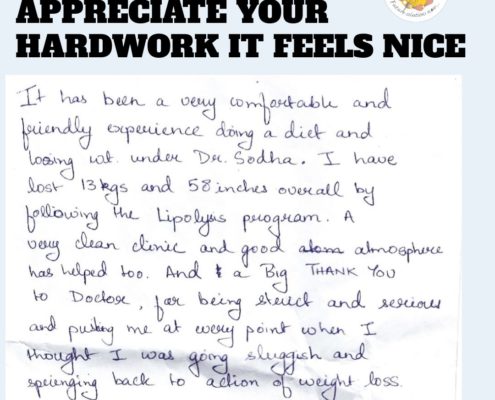 APPRECIATE YOUR
HARDWORK IT FEELS NICE
It has been a very comfortable and
friendly experience doing a diet and
loosing wt. under Dr. Sodha. I have
lost 13kgs and 58 inches overall by
following the Lipolysis program. A
very clean clinic and good atmosphere
has helped too. And a Big THANK YOU
to Doctor, for being strict and serious
and pushing me at every point when I
thought I was going sluggish and
springing back to action of weight loss.